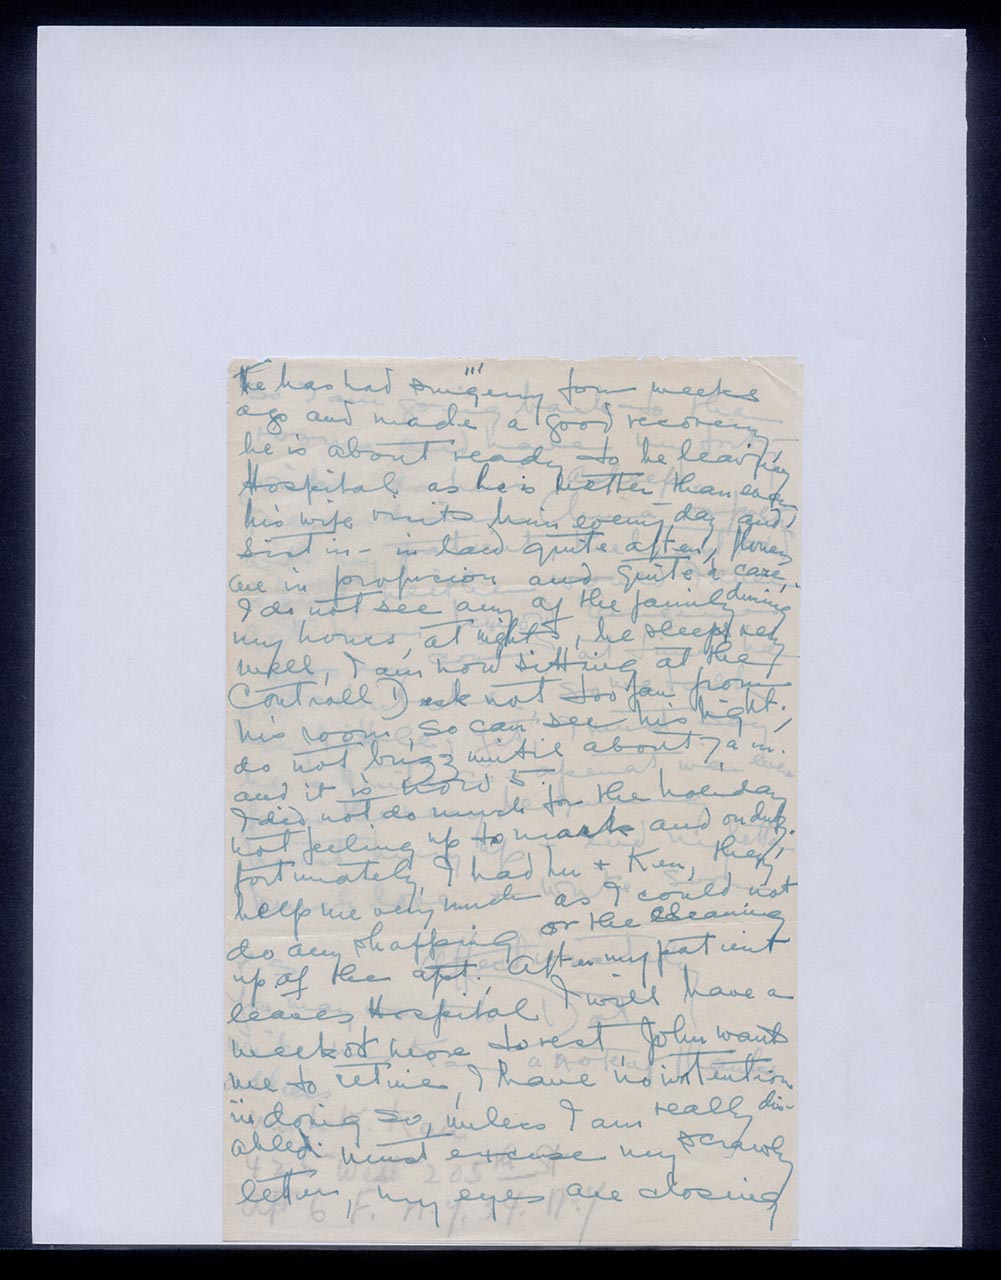 III
He has had surgery four weeks
ago and made a good recovery,
he is about ready to be leaving
Hospital, as he is better than ever,
his wife visits him every day and
sister-in-law quite often, flowers
are in profusion and quite a care,
I do not see any of the family during
my hours, at nights, he sleeps very
well, I am now sitting at the
Controll Desk not too far from
his room, so can see his light,
do not buzz until about 7 a.m.
and it is now 5.
I did not do much for the holiday,
not feeling up to mark and on duty.
fortunately, I had Lu + Ken, they
help me very much as I could not
do any shopping or the cleaning
up of the apt. After my patient
leaves Hospital I will have a
week or more to rest John wants
me to retire, I have no intention
in doing so, unless I am really dis-
abled. must excuse my scrawly
letter, my eyes are closing
425 West 205th St
Apt 6 F. N.Y. 34. N.Y